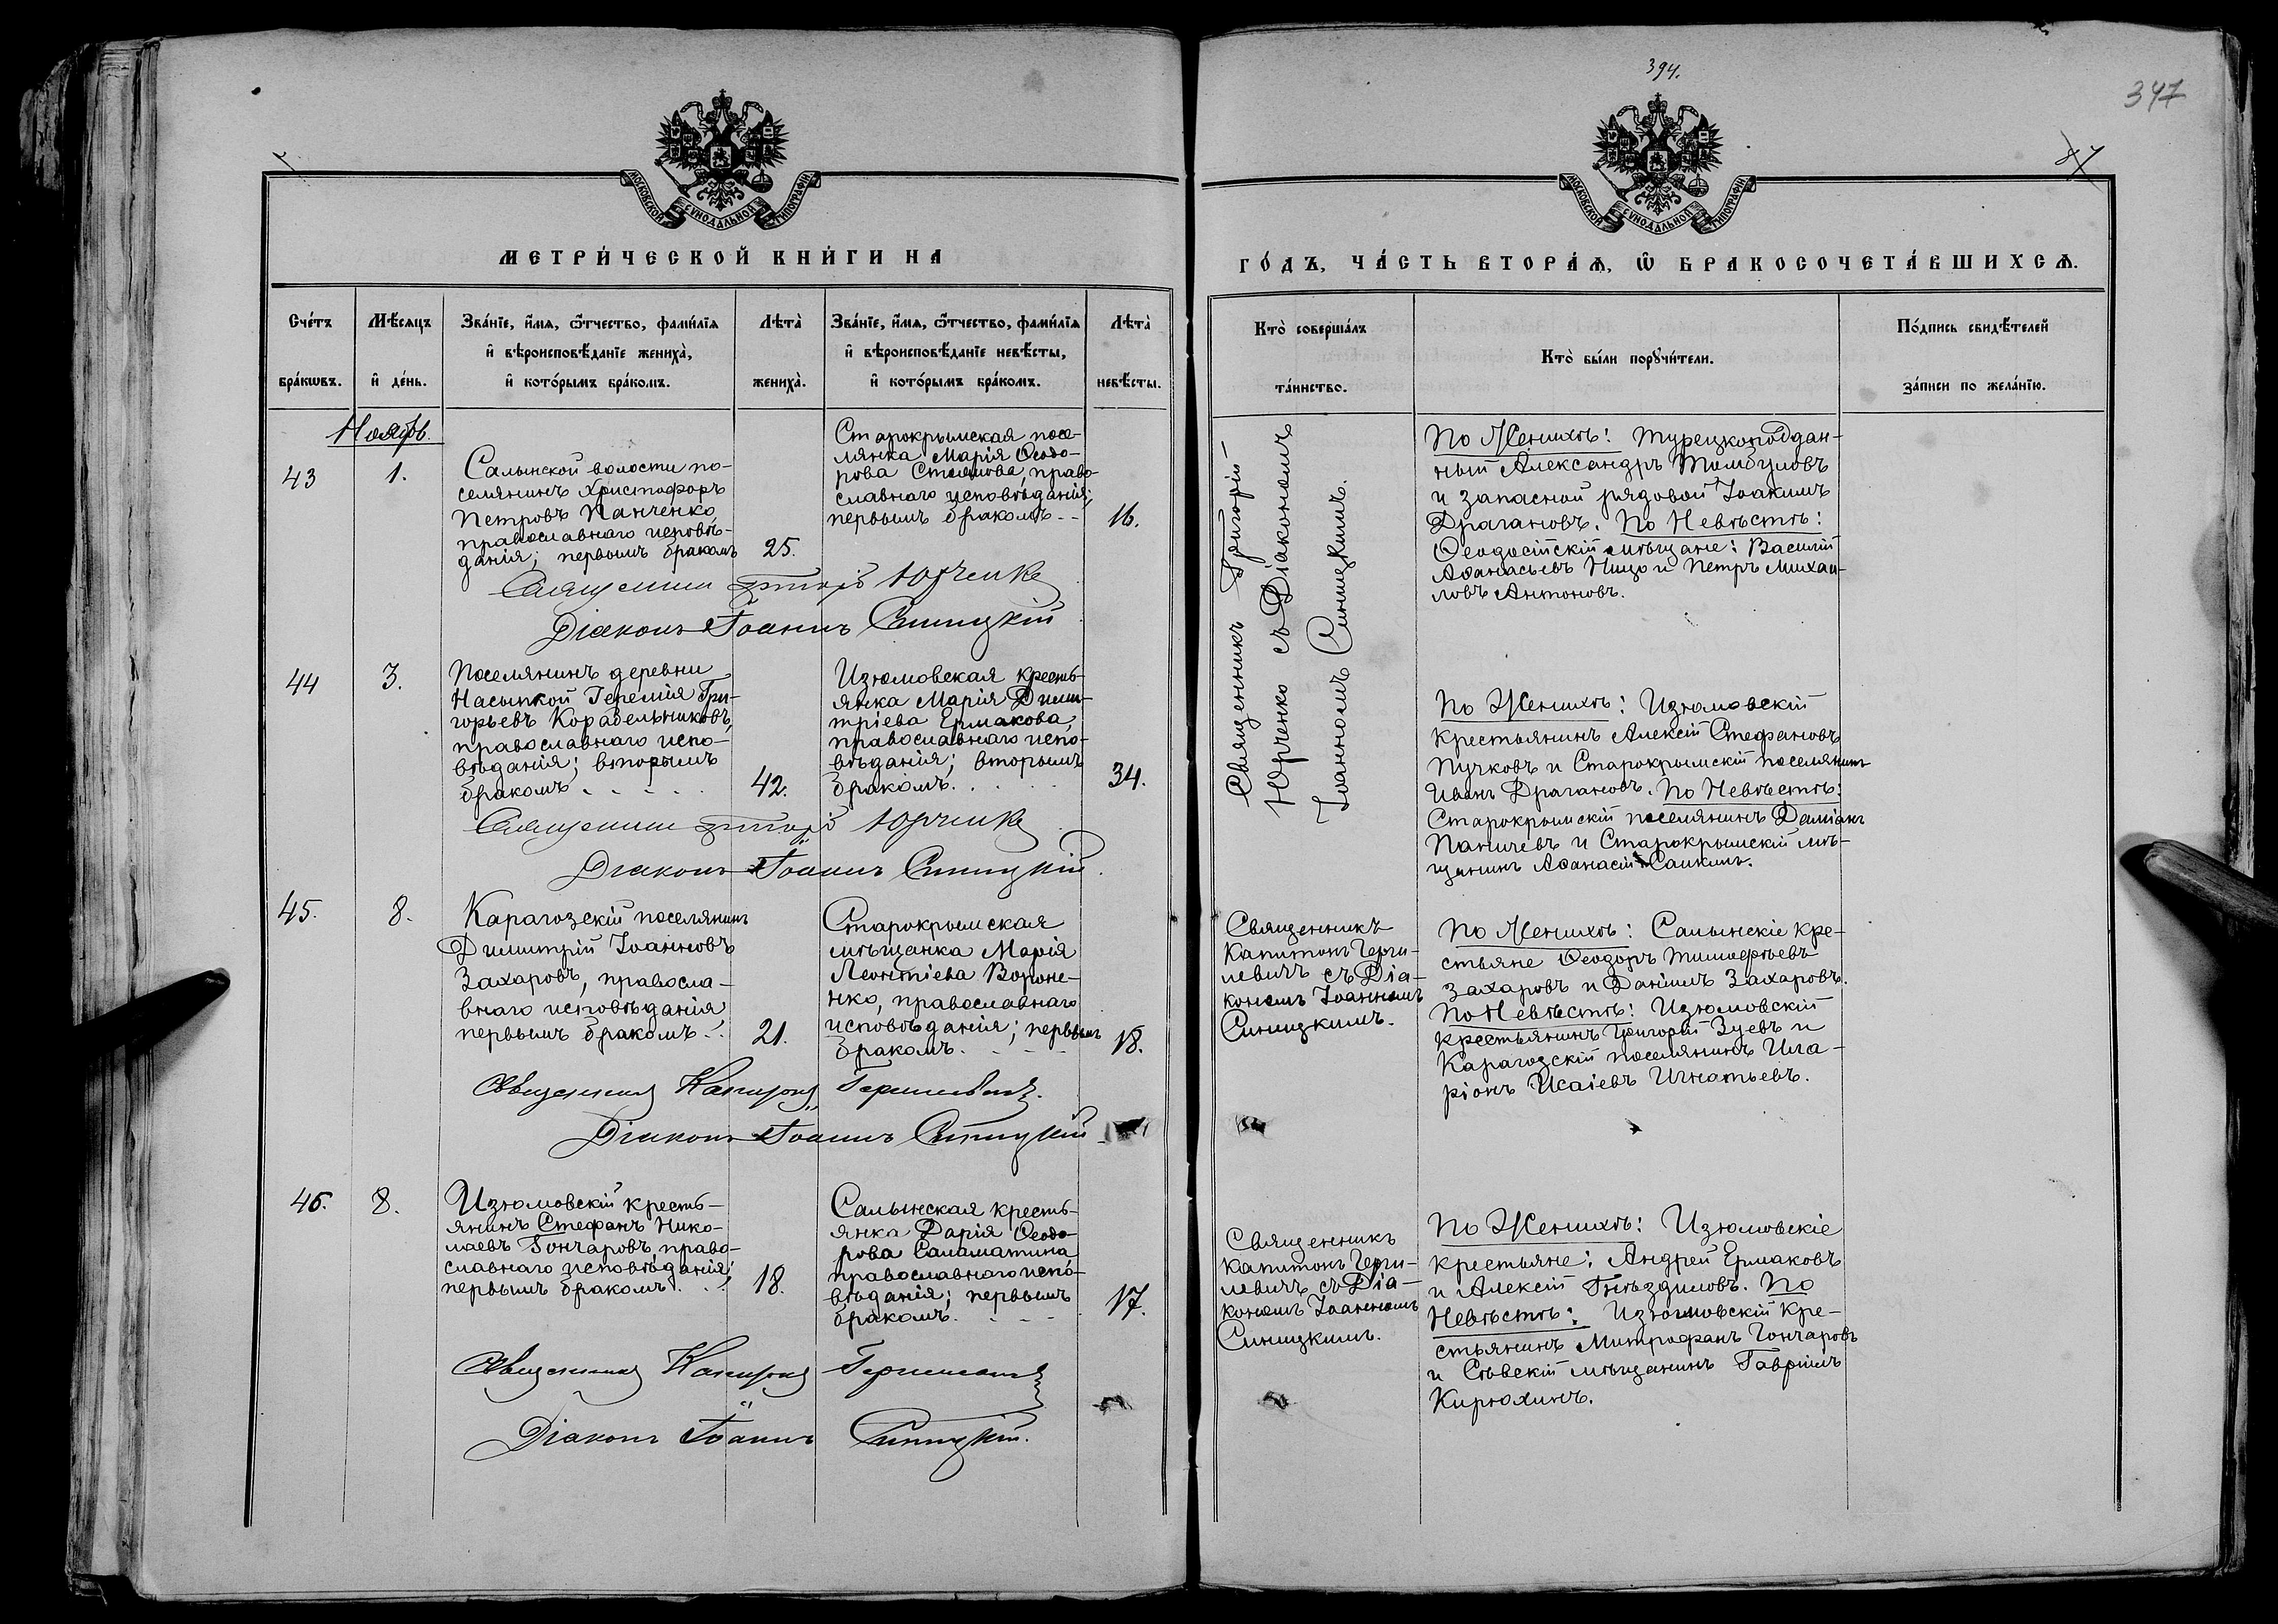 394.
347
87
МОСКОВСКОЙ СѴНОДАЛЬНОЙ ТИПОГРАФІИ
МОСКОВСКОЙ СѴНОДАЛЬНОЙ ТИПОГРАФІИ
МЕТРИ́ЧЕСКОЙ КНИ́ГИ НА
ГО́ДЪ, ЧА́СТЬ ВТОРА́Ѧ, Ѽ БРАКОСОЧЕТА́ВШИХСѦ.
Сче́тъ
бра́кѡвъ.
Мѣ́сяцъ
и҆ де́нь.
Зва́нїе, и҆́мя, ѻ҆́тчество, фами́лїя
и҆ вѣроисповѣ́данїе жениха̀,
и҆ кото́рымъ бра́комъ.
Лѣта̀
жениха̀.
Зва́нїе, и҆́мя, ѻ҆́тчество, фами́лїя
и҆ вѣроисповѣ́данїе невѣ́сты,
и҆ кото́рымъ бра́комъ.
Лѣта̀
невѣ́сты.
Кто̀ соверша́лъ
та́инство.
Кто̀ бы́ли порꙋчи́тели.
По́дпись свидѣ́телей
за́писи по жела́нїю.
Ноябрь.
43
1.
Салынской волости по-
селянинъ Христофоръ
Петровъ Панченко,
православнаго исповѣ-
данія; первымъ бракомъ
25.
Старокрымская посе-
лянка Марія Ѳеодо-
рова Стоянова, право-
славнаго исповѣданія;
первымъ бракомъ. -
16.
Священникъ Григорій
Юрченко съ Діакономъ
Іоанномъ Синицкимъ.
По Женихѣ: Турецкоподдан-
ный Александръ Томбуловъ
и запасной рядовой Іоакимъ
Драгановъ. По Невѣстѣ:
Ѳеодосійскій мѣщане: Василій
Аѳанасьевъ Ницо и Петръ Михаи-
ловъ Антоновъ.
Священникъ Григорій Юрченко
Діаконъ Іоаннъ Синицкій
44
3.
Поселянинъ деревни
Насыпкой Іеремія Гри-
горьевъ Корабельниковъ,
православнаго испо-
вѣданія; вторымъ
бракомъ - - - -
42.
Изюмовская кресть-
янка Марія Дими-
тріева Ермакова,
православнаго испо-
вѣданія; вторымъ
бракомъ. . . .
34.
По Женихѣ: Изюмовскій
крестьянинъ Алексій Стефановъ
Пучковъ и Старокрымскій поселянинъ
Иванъ Драгановъ. По Невѣстѣ:
Старокрымскій поселянинъ Даміанъ
Паничевъ и Старокрымскій мѣ-
щанинъ Аѳанасій Саикинъ.
Священникъ Григорій Юрченко
Діаконъ Іоаннъ Синицкій.
45.
8.
Карагозскій поселянинъ
Димитрій Іоанновъ
Захаровъ, правосла-
внаго исповѣданія
первымъ бракомъ - .
21.
Старокрымская
мѣщанка Марія
Леонтіева Вороне-
нко, православнаго
исповѣданія; первымъ
бракомъ. - - -
18.
Священникъ
Капитонъ Герги-
левичъ съ Діа-
кономъ Іоанномъ
Синицкимъ.
По Женихѣ: Салынскіе кре-
стьяне Ѳеодоръ Тимоѳеевъ
Захаровъ и Даніилъ Захаровъ.
По Невѣстѣ: Изюмовскій
крестьянинъ Григорій Зуевъ и
Карагозскій поселянинъ Ила-
ріонъ Исаіевъ Игнатьевъ.
Священникъ Капитонъ Гергилевичъ.
Діаконъ Іоаннъ Синицкій
46.
8.
Изюмовскій кресть-
янинъ Стефанъ Нико-
лаевъ Гончаровъ, право-
славнаго исповѣданія;
первымъ бракомъ . . .
18.
Салынская кресть-
янка Дарія Ѳеодо-
рова Саламатина
православнаго испо-
вѣданія; первымъ
бракомъ. - - -
17.
Священникъ
Капитонъ Герги-
левичъ съ Діа-
кономъ Іоанномъ
Синицкимъ.
По Женихѣ: Изюмовскіе
крестьяне: Андрей Ермаковъ
и Алексій Гнѣздиловъ. По
Невѣстѣ: Изюмовскій кре-
стьянинъ Митрофанъ Гончаровъ
и Сѣвскій мѣщанинъ Гавріилъ
Кирюхинъ.
Священникъ Капитонъ Гергилевичъ
Діаконъ Іоаннъ Синицкій.